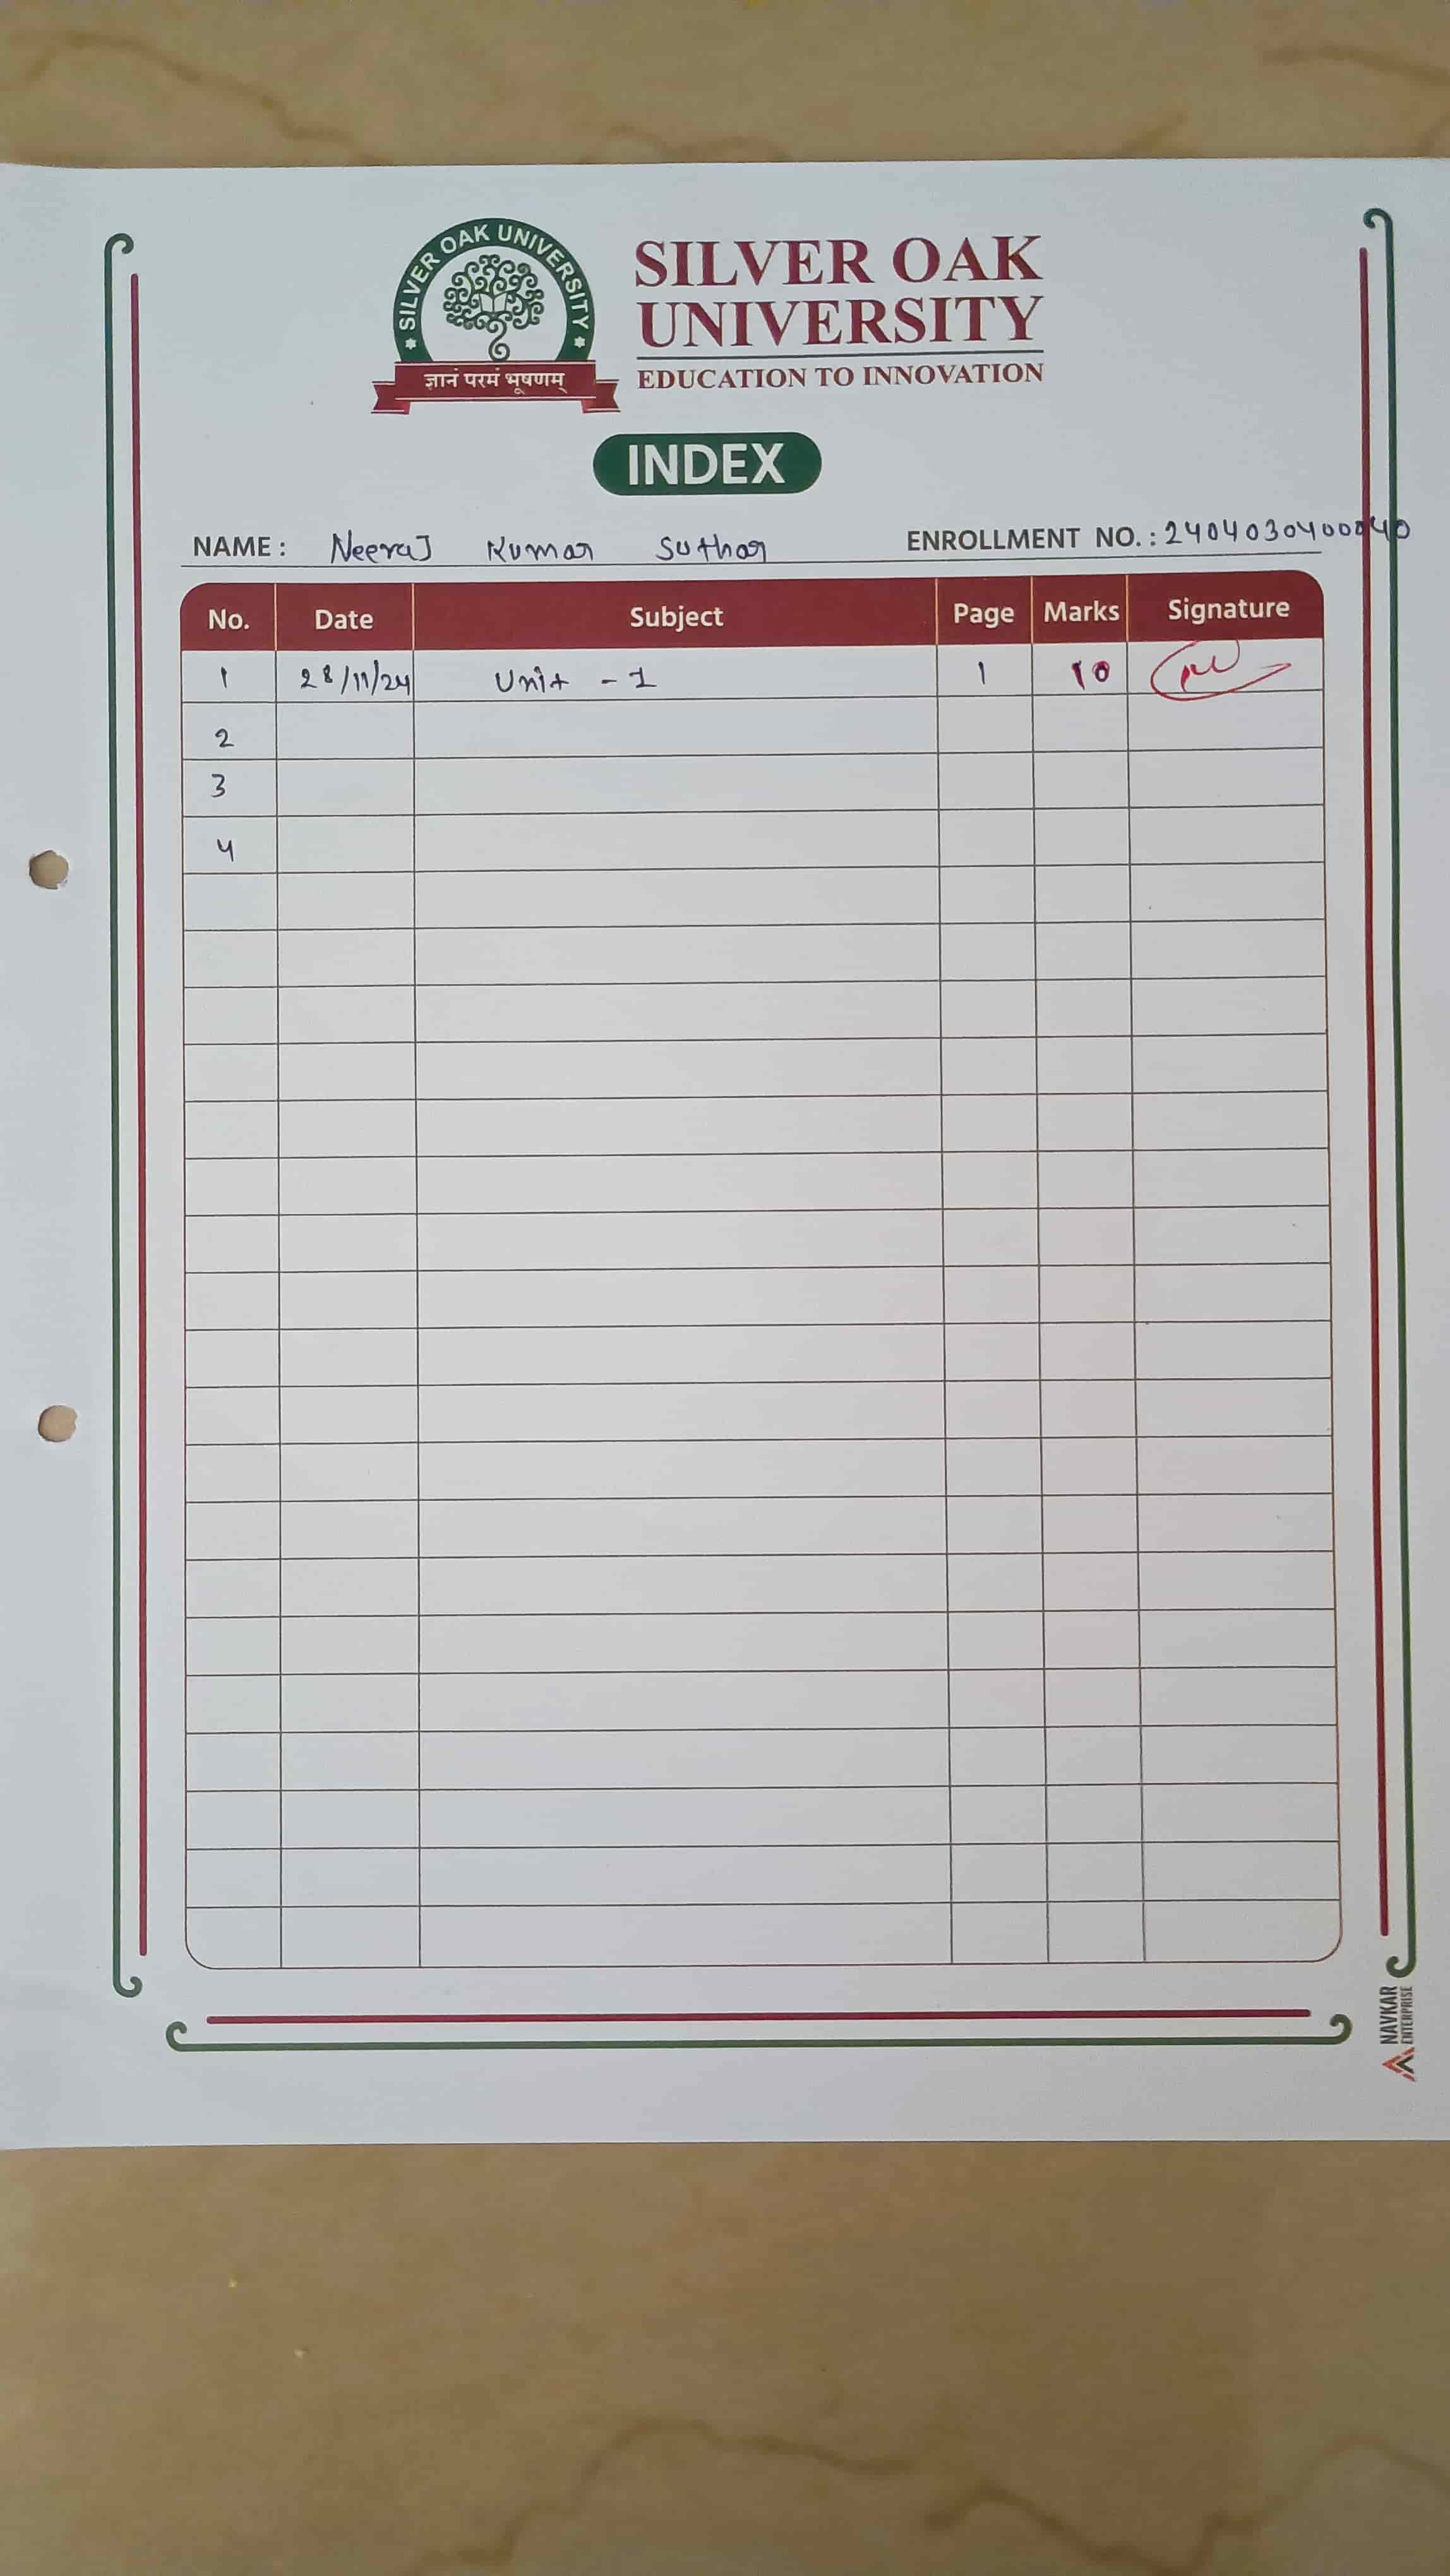 SILVER OAK UNIVERSITY
ज्ञानं परमं भूषणम्
SILVER OAK
UNIVERSITY
EDUCATION TO INNOVATION
INDEX
NAME : Neeraj Kumar Suthar ENROLLMENT NO. : 2404030400040
No. Date Subject Page Marks Signature
1 28/11/24 Unit - 1 1 10
2
3
4
NAVKAR
ENTERPRISE